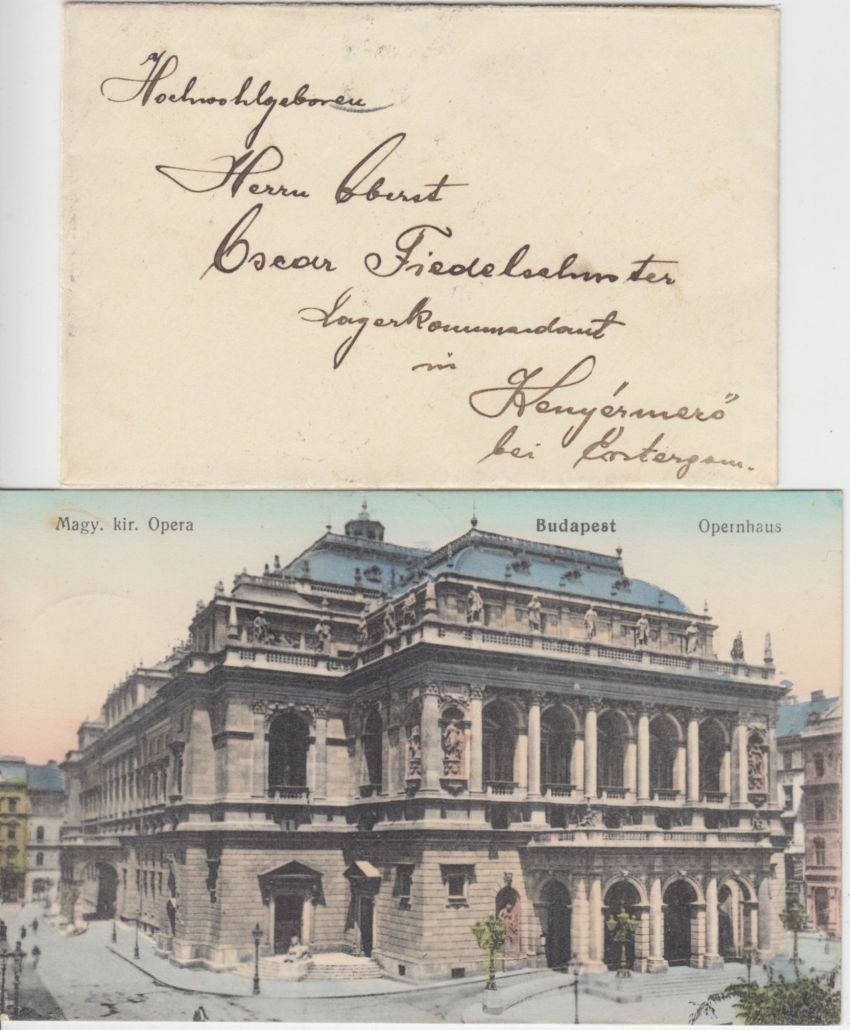 Hochwohlgeboren
Herrn Oberst
Oscar Fiedelschuster
Lagerkommandant
in
Kenyérmező
bei Esztergom.
Magy. kir. Opera Budapest Opernhaus